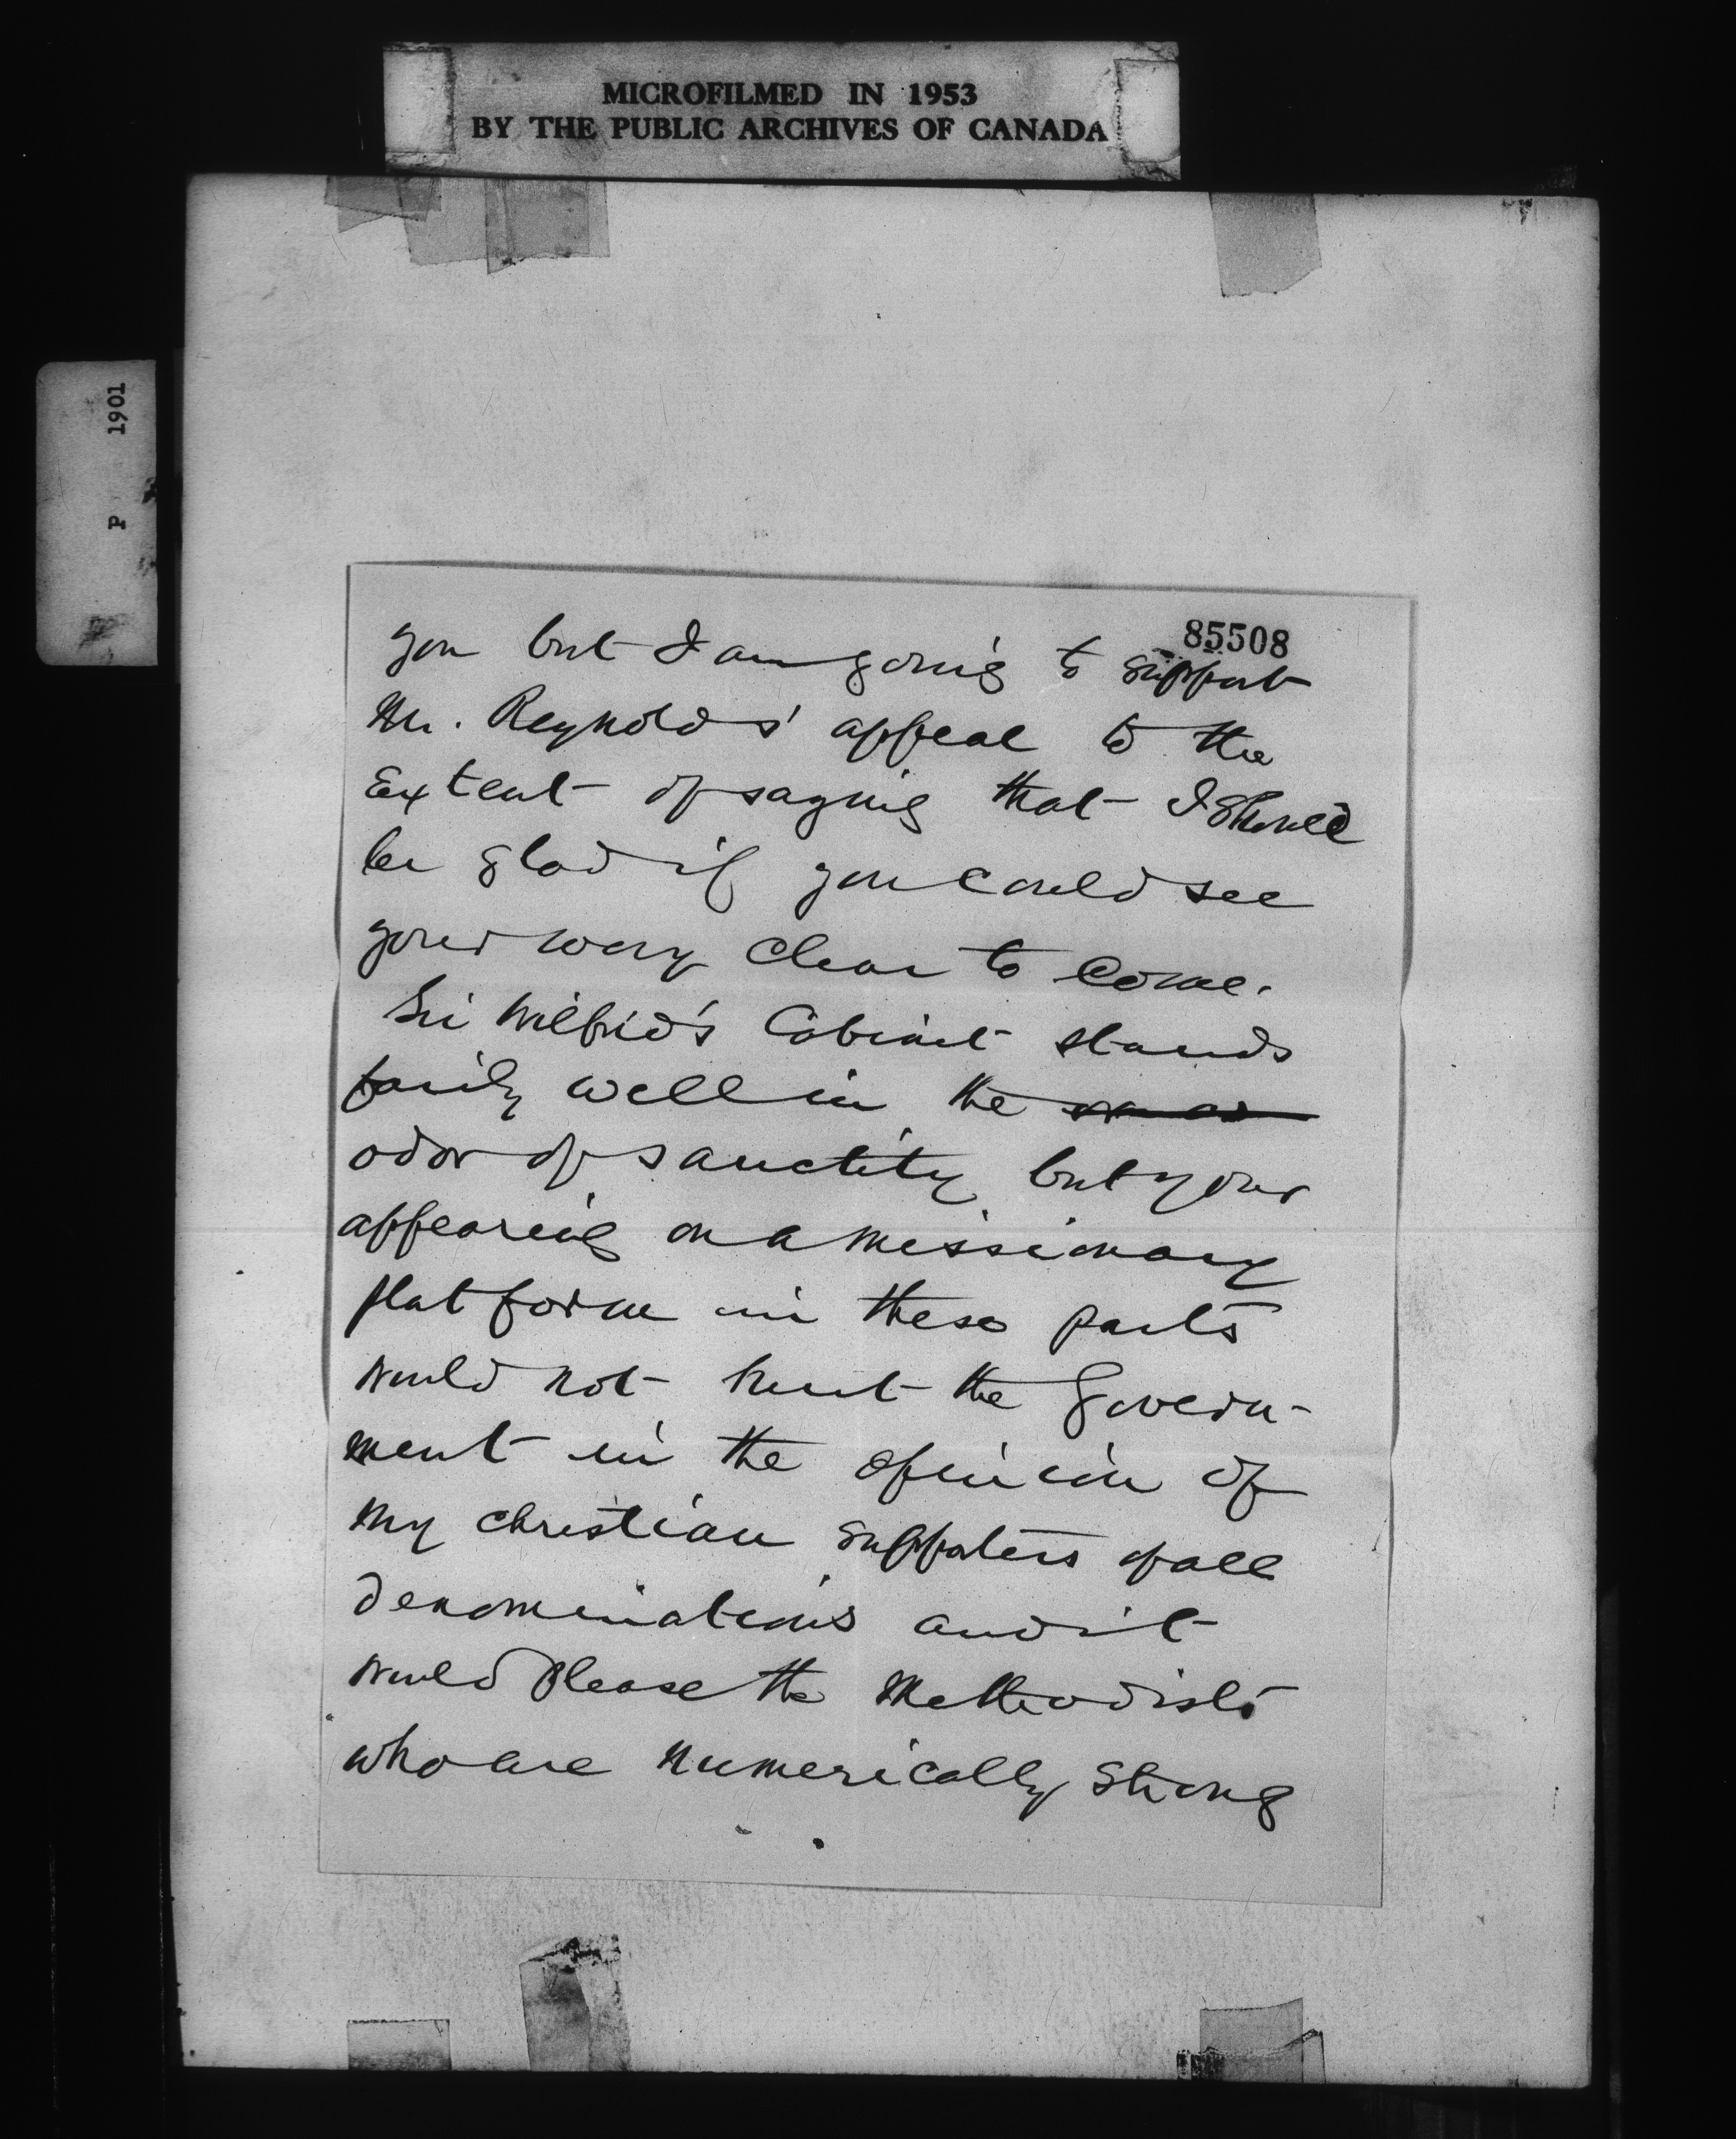 MICROFILMED IN 1953
BY THE PUBLIC ARCHIVES OF CANADA
P 1901
85508
you but I am going to support
Mr. Reynolds' appeal to the
extent of saying that I should
be glad if you could see
your way clear to come.
Sir Wilfrid's Cabinet stands
fairly well in the
odor of sanctity but your
appearing on a missionary
platform in these parts
would not hurt the Govern-
ment in the opinion of
my christian supporters of all
denominations and it
would please the Methodists
who are numerically strong